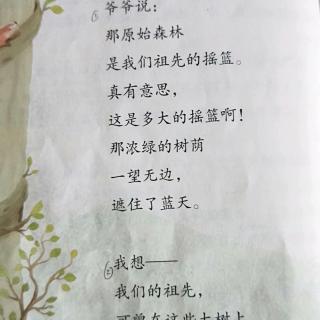 ①爷爷说：
那原始森林
是我们祖先的摇篮。
真有意思，
这是多大的摇篮啊！
那浓绿的树荫
一望无边，
遮住了蓝天。
②我想——
我们的祖先，
可曾在这些大树上